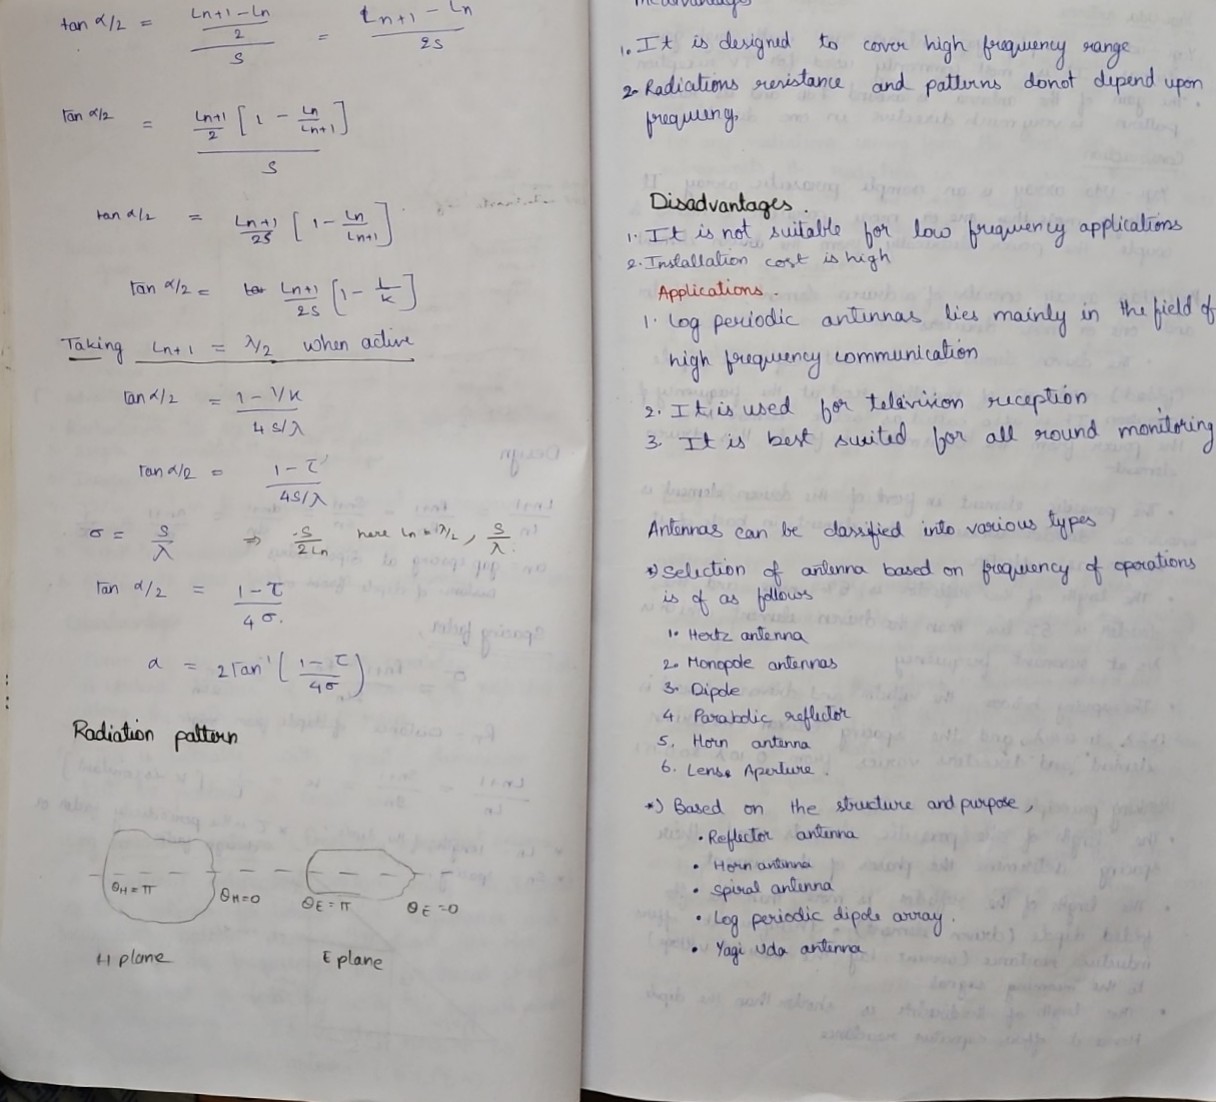 tan α/2 = Ln+1-Ln / 2 / S = Ln+1 - Ln / 2S
tan α/2 = Ln+1/2 [1 - Ln/Ln+1] / S
tan α/2 = Ln+1/2S [1 - Ln/Ln+1]
tan α/2 = Ln+1/2S [1 - 1/K]
Taking Ln+1 = λ/2 when active
tan α/2 = 1 - 1/K / 4 S/λ
tan α/2 = 1 - τ / 4S/λ
σ = S/λ ⇒ S/2Ln here Ln = λ/2, S/λ.
tan α/2 = 1 - τ / 4 σ.
α = 2 Tan⁻¹ ( 1 - τ / 4σ )
Radiation pattern
θH = π θH=0 θE = π θE =0
H plane E plane
1. It is designed to cover high frequency range
2. Radiations resistance and patterns donot depend upon
frequency.
Disadvantages.
1. It is not suitable for low frequency applications
2. Installation cost is high
Applications.
1. Log periodic antennas lies mainly in the field of
high frequency communication
2. It is used for television reception
3. It is best suited for all round monitoring
Antennas can be classified into various types
*) Selection of antenna based on frequency of operations
is of as follows
1. Hertz antenna
2. Monopole antennas
3. Dipole
4. Parabolic reflector
5. Horn antenna
6. Lens. Aperture.
*) Based on the structure and purpose,
• Reflector antenna
• Horn antenna
• Spiral antenna
• Log periodic dipole array.
• Yagi Uda antenna